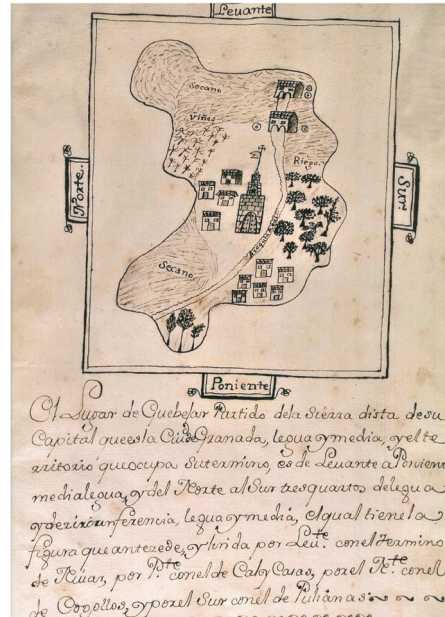 Leuante
Secano
Viñas
Riego.
Norte.
Sur.
Secano
Poniente
El Lugar de Guebejar Partido dela Sierra dista desu
Capital queesla Ciud. Granada, legua ymedia, yelte
rritorio queocupa sutermino, es de Leuante a Ponien
medialegua, ydel Norte al Sur tresquartos delegua
ydezircunferencia, legua ymedia, elqual tienela
figura queantezede, y linda por Leu.te conel termino
de por P.te conel de Calycasas, porel N.te conel
de Cogollos, yporel Sur conel de Pulianas